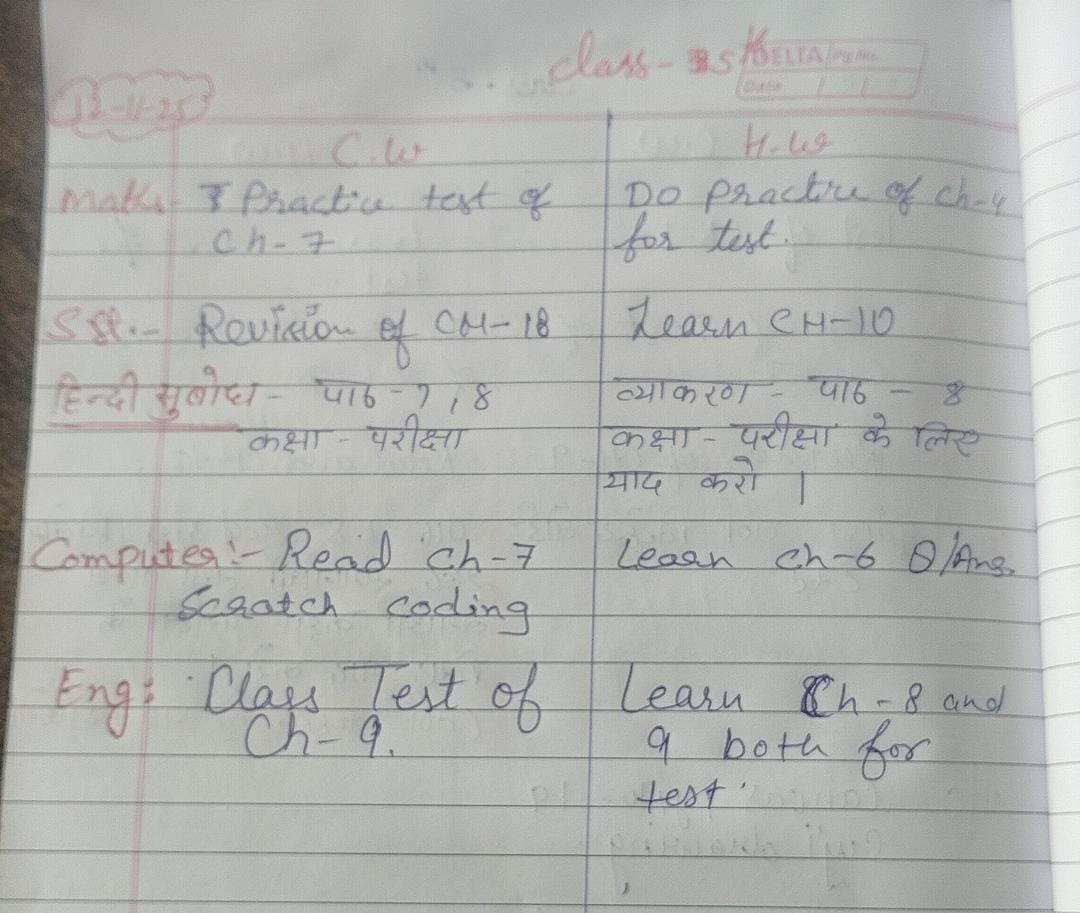 Class - 5th
DELTA Pg No.
Date / /
12-11-25
C.W H.W
Maths- Practice test of Do Practice of ch-4
Ch-7 for test.
S.St.- Revision of CH-18 Learn CH-10
हिन्दी सुबोध- पाठ-7,8 व्याकरण- पाठ - 8
कक्षा-परीक्षा कक्षा-परीक्षा के लिए
याद करो ।
Computer:- Read Ch-7 Learn ch-6 Q/Ans.
Scratch coding
Eng: Class Test of Learn Ch-8 and
Ch-9. 9 both for
test.